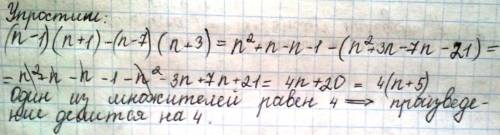 Упростим:
(n-1)(n+1)-(n-7)(n+3)=n²+n-n-1-(n²+3n-7n-21)=
=n²+n-n-1-n²-3n+7n+21=4n+20=4(n+5)
Один из множителей равен 4 ⟹ произведе-
ние делится на 4.